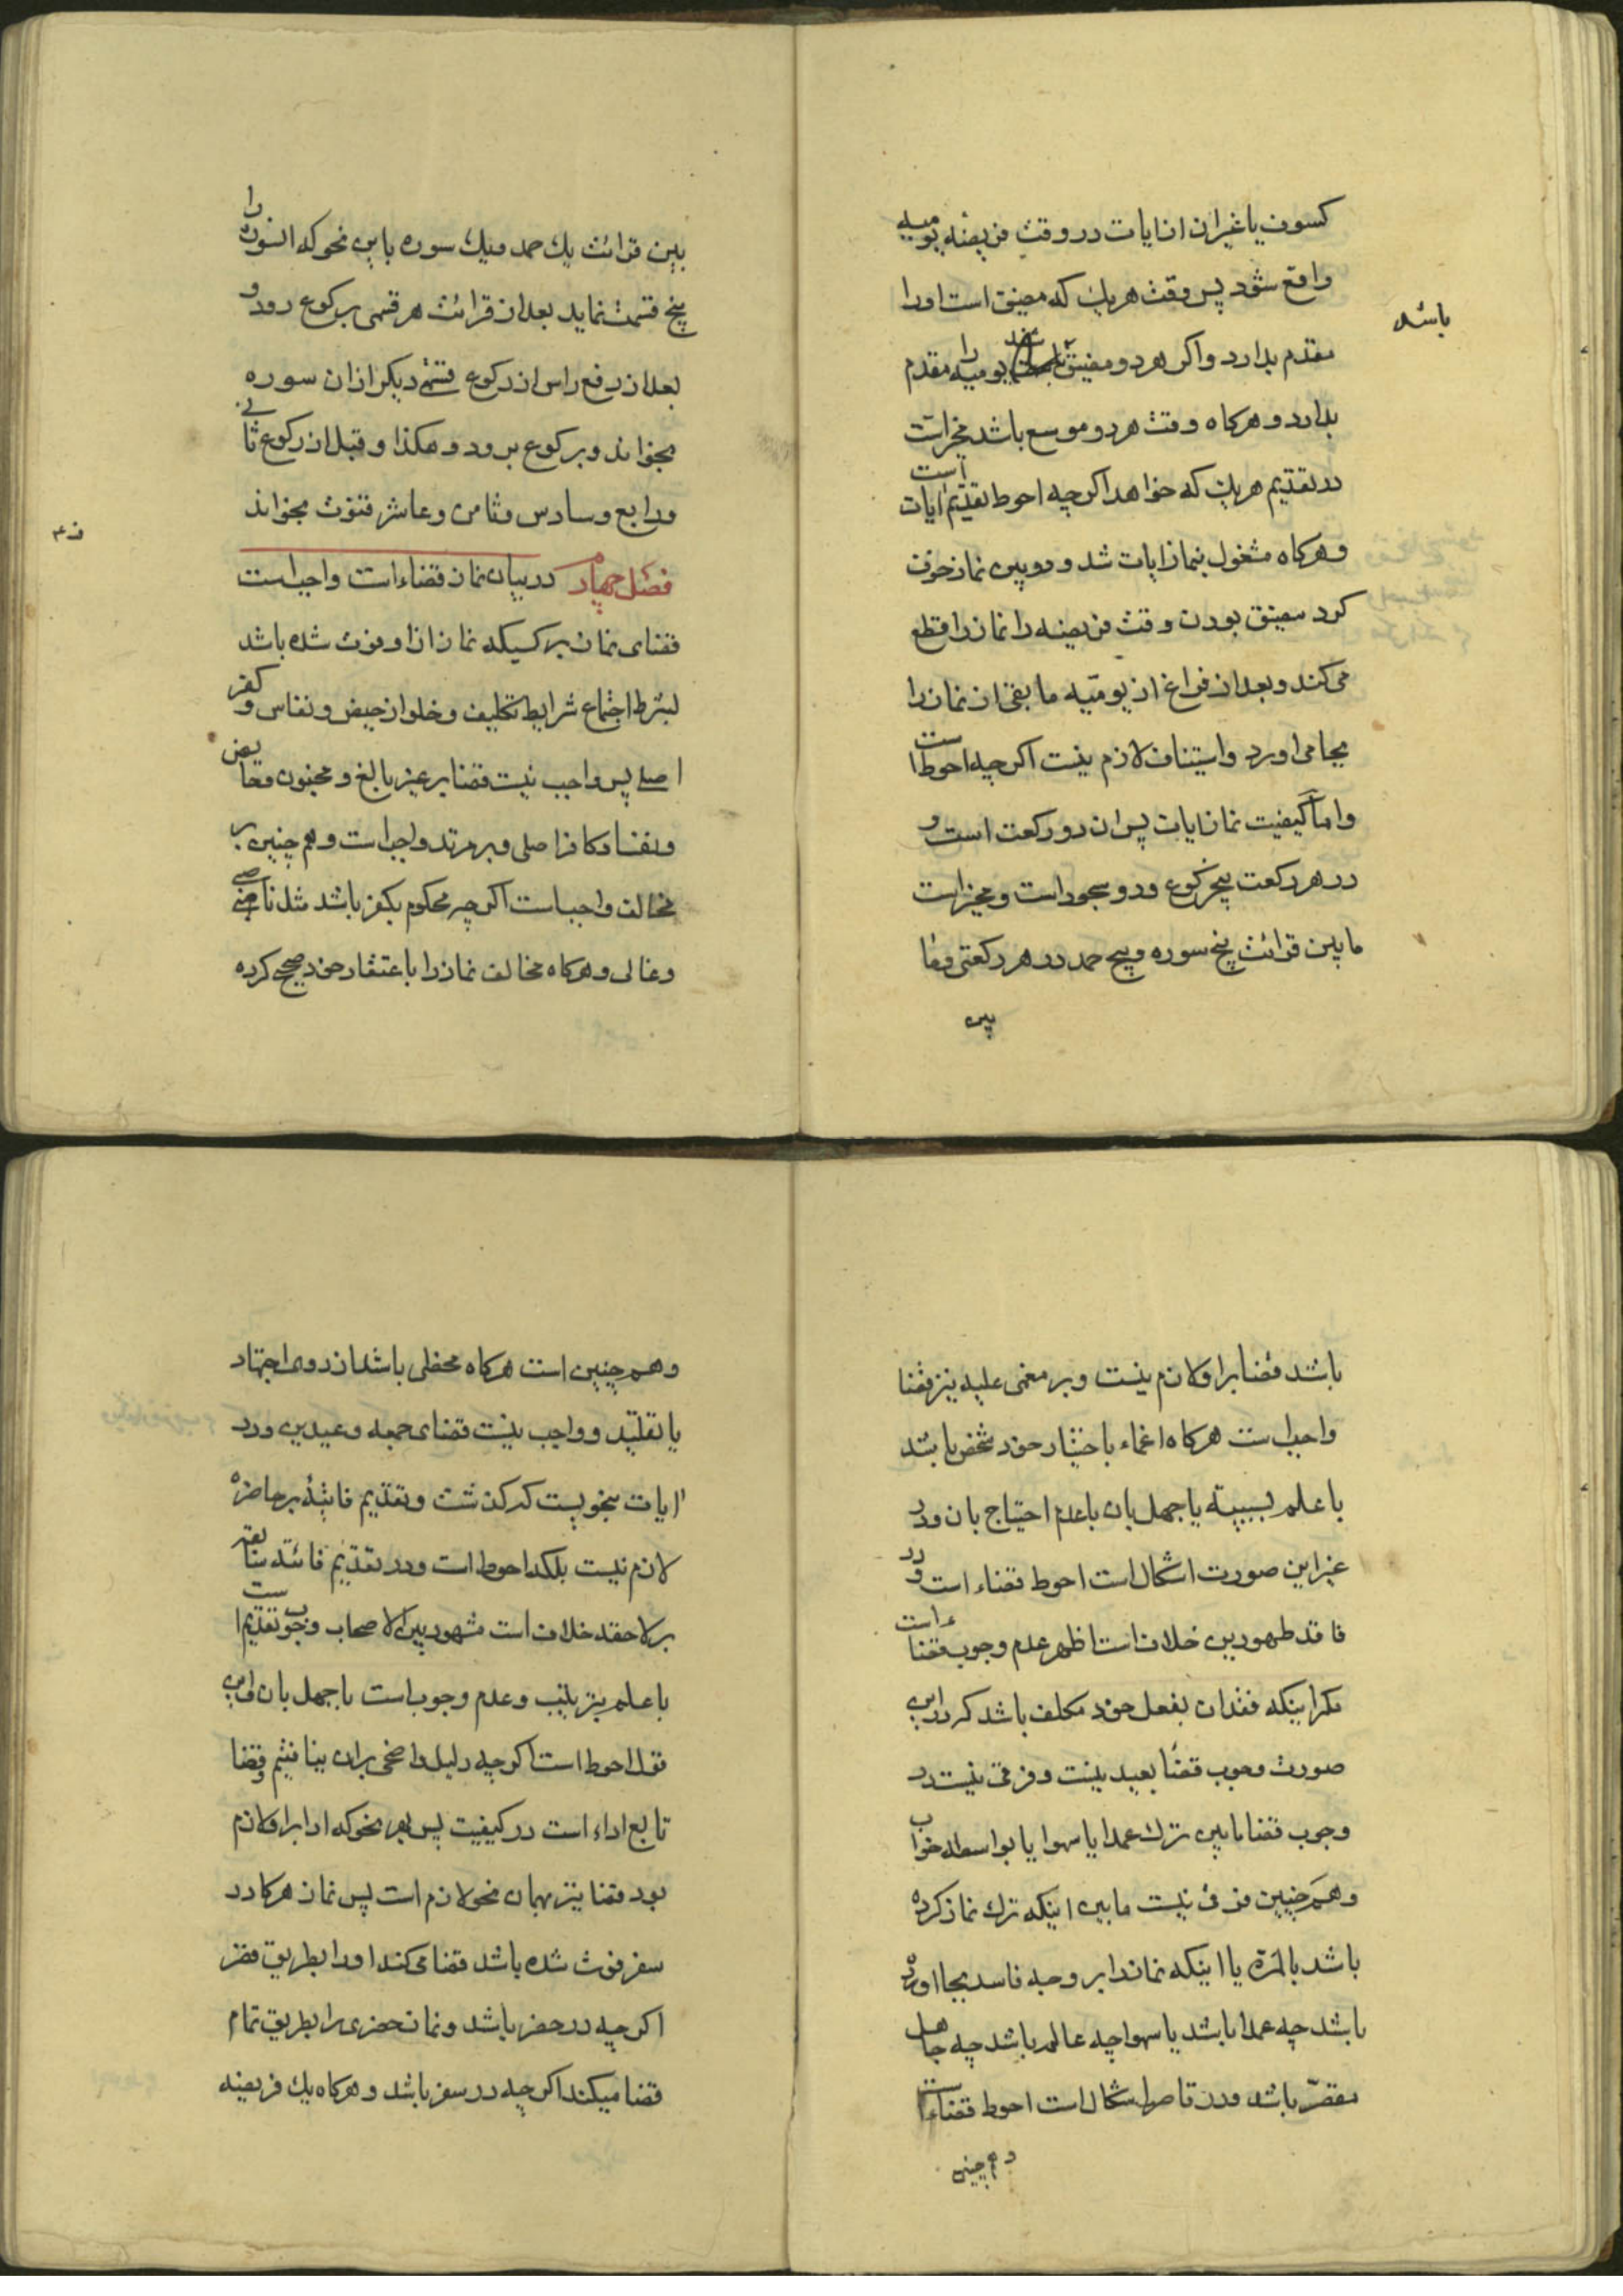 کسوف یا غیر آن از ایات در وقت فریضه یومیه
واقع شود پس وقت هر یك که مضیق است او را
مقدم بدارد و اکر هر دو مضیق یومیه را مقدم
باشد
بدارد و هرکاه وقت هر دو موسع باشد مخیر است
در تقدیم هر یك که خواهد اکرچه احوط تقدیم ایات است
و هرکاه مشغول بنماز ایات شد و در بین نماز خوف
کرد مضیق بودن وقت فریضه را نماز را قطع
می کند و بعد از فراغ از یومیّه ما بقی از نماز را
بجا می اورد و استیناف لازم نیست اکرچه احوط است
و امّا کیفیت نماز ایات پس ان دو رکعت است و
در هر رکعت پنج رکوع و دو سجود است و مخیر است
ما بین قرائت پنج سوره و پنج حمد در هر رکعتی و ما
بین
بین قرائت یك حمد و یك سوره باین نحو که ان سوره را
پنج قسمت نماید بعد از قرائت هر قسمی برکوع رود و
بعد از رفع راس از رکوع قسمی دیکر از ان سوره
بخواند و برکوع برود و هکذا و قبل از رکوع ثانی
و رابع و سادس و ثامن و عاشر قنوت بخواند
فصل چهارم در بیان نماز قضاء است واجب است
قضای نماز بر کسیکه نماز از او فوت شده باشد
بشرط اجتماع شرایط تکلیف و خلو از حیض و نفاس و کفر
اصلی پس واجب نیست قضا بر غیر بالغ و مجنون و حایض
و نفساء و کافر اصلی و بر مرتد واجب است و هم چنین بر
مخالف واجب است اکرچه محکوم بکفر باشد مثل ناصبی
و غالی و هرکاه مخالف نماز را باعتقاد خود صحیح کرده
باشد قضا بر او لازم نیست و بر مغمی علیه نیز قضا
واجب است هرکاه اغماء باختیار خود شخص باشد
با علم بسببیّة یا جهل بان با عدم احتیاج بان و در
غیر این صورت اشکال است احوط قضاء است و در
فاقد طهورین خلاف است اظهر عدم وجوب قضاء است
مکر اینکه فقدان بفعل خود مکلف باشد که در این
صورت وجوب قضا بعید نیست و فرقی نیست در
وجوب قضا ما بین ترك عمدا یا سهوا یا بواسطه خواب
و هم چنین فرقی نیست ما بین اینکه ترك نماز کرده
باشد بالمرّة یا اینکه نماز را بر وجه فاسد بجا اورده
باشد چه عمدا باشد یا سهوا چه عالم باشد چه جاهل
مقصّر باشد و در قاصر اشکال است احوط قضاء است
و هم چنین
و هم چنین است هرکاه مخطی باشد از روی اجتهاد
یا تقلید و واجب نیست قضای جمعه و عیدین و در
ایات بنحویست که کذشت و تقدیم فایتهٔ بر حاضره
لازم نیست بلکه احوط است و در تقدیم فائته سابقه
بر لاحقه خلاف است مشهور بین الاصحاب وجوب تقدیم است
با علم بترتیب و عدم وجوب است با جهل بان و این
قول احوط است اکرچه دلیل واضحی بران نیافتیم و قضا
تابع اداء است در کیفیت پس بهر نحو که ادا بر او لازم
بود قضا نیز بهمان نحو لازم است پس نماز هرکا در
سفر فوت شده باشد قضا می کند او را بطریق قصر
اکرچه در حضر باشد و نماز حضری را بطریق تمام
قضا میکند اکرچه در سفر باشد و هرکاه یك فریضه